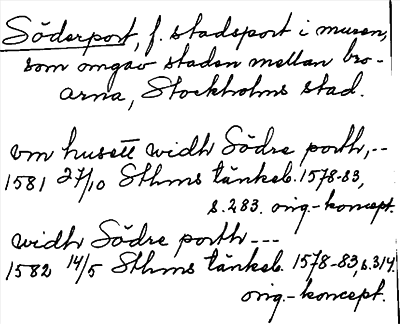 Söderport, f. stadsport i muren,
som omgav staden mellan bro-
arna, Stockholms stad.
om husett widh Södre porth,--
1581 27/10 Sthms tänkeb. 1578-83,
s. 283. orig.-koncept.
widh Södre porth---
1582 14/5 Sthms tänkeb. 1578-83, s. 314.
orig.-koncept.